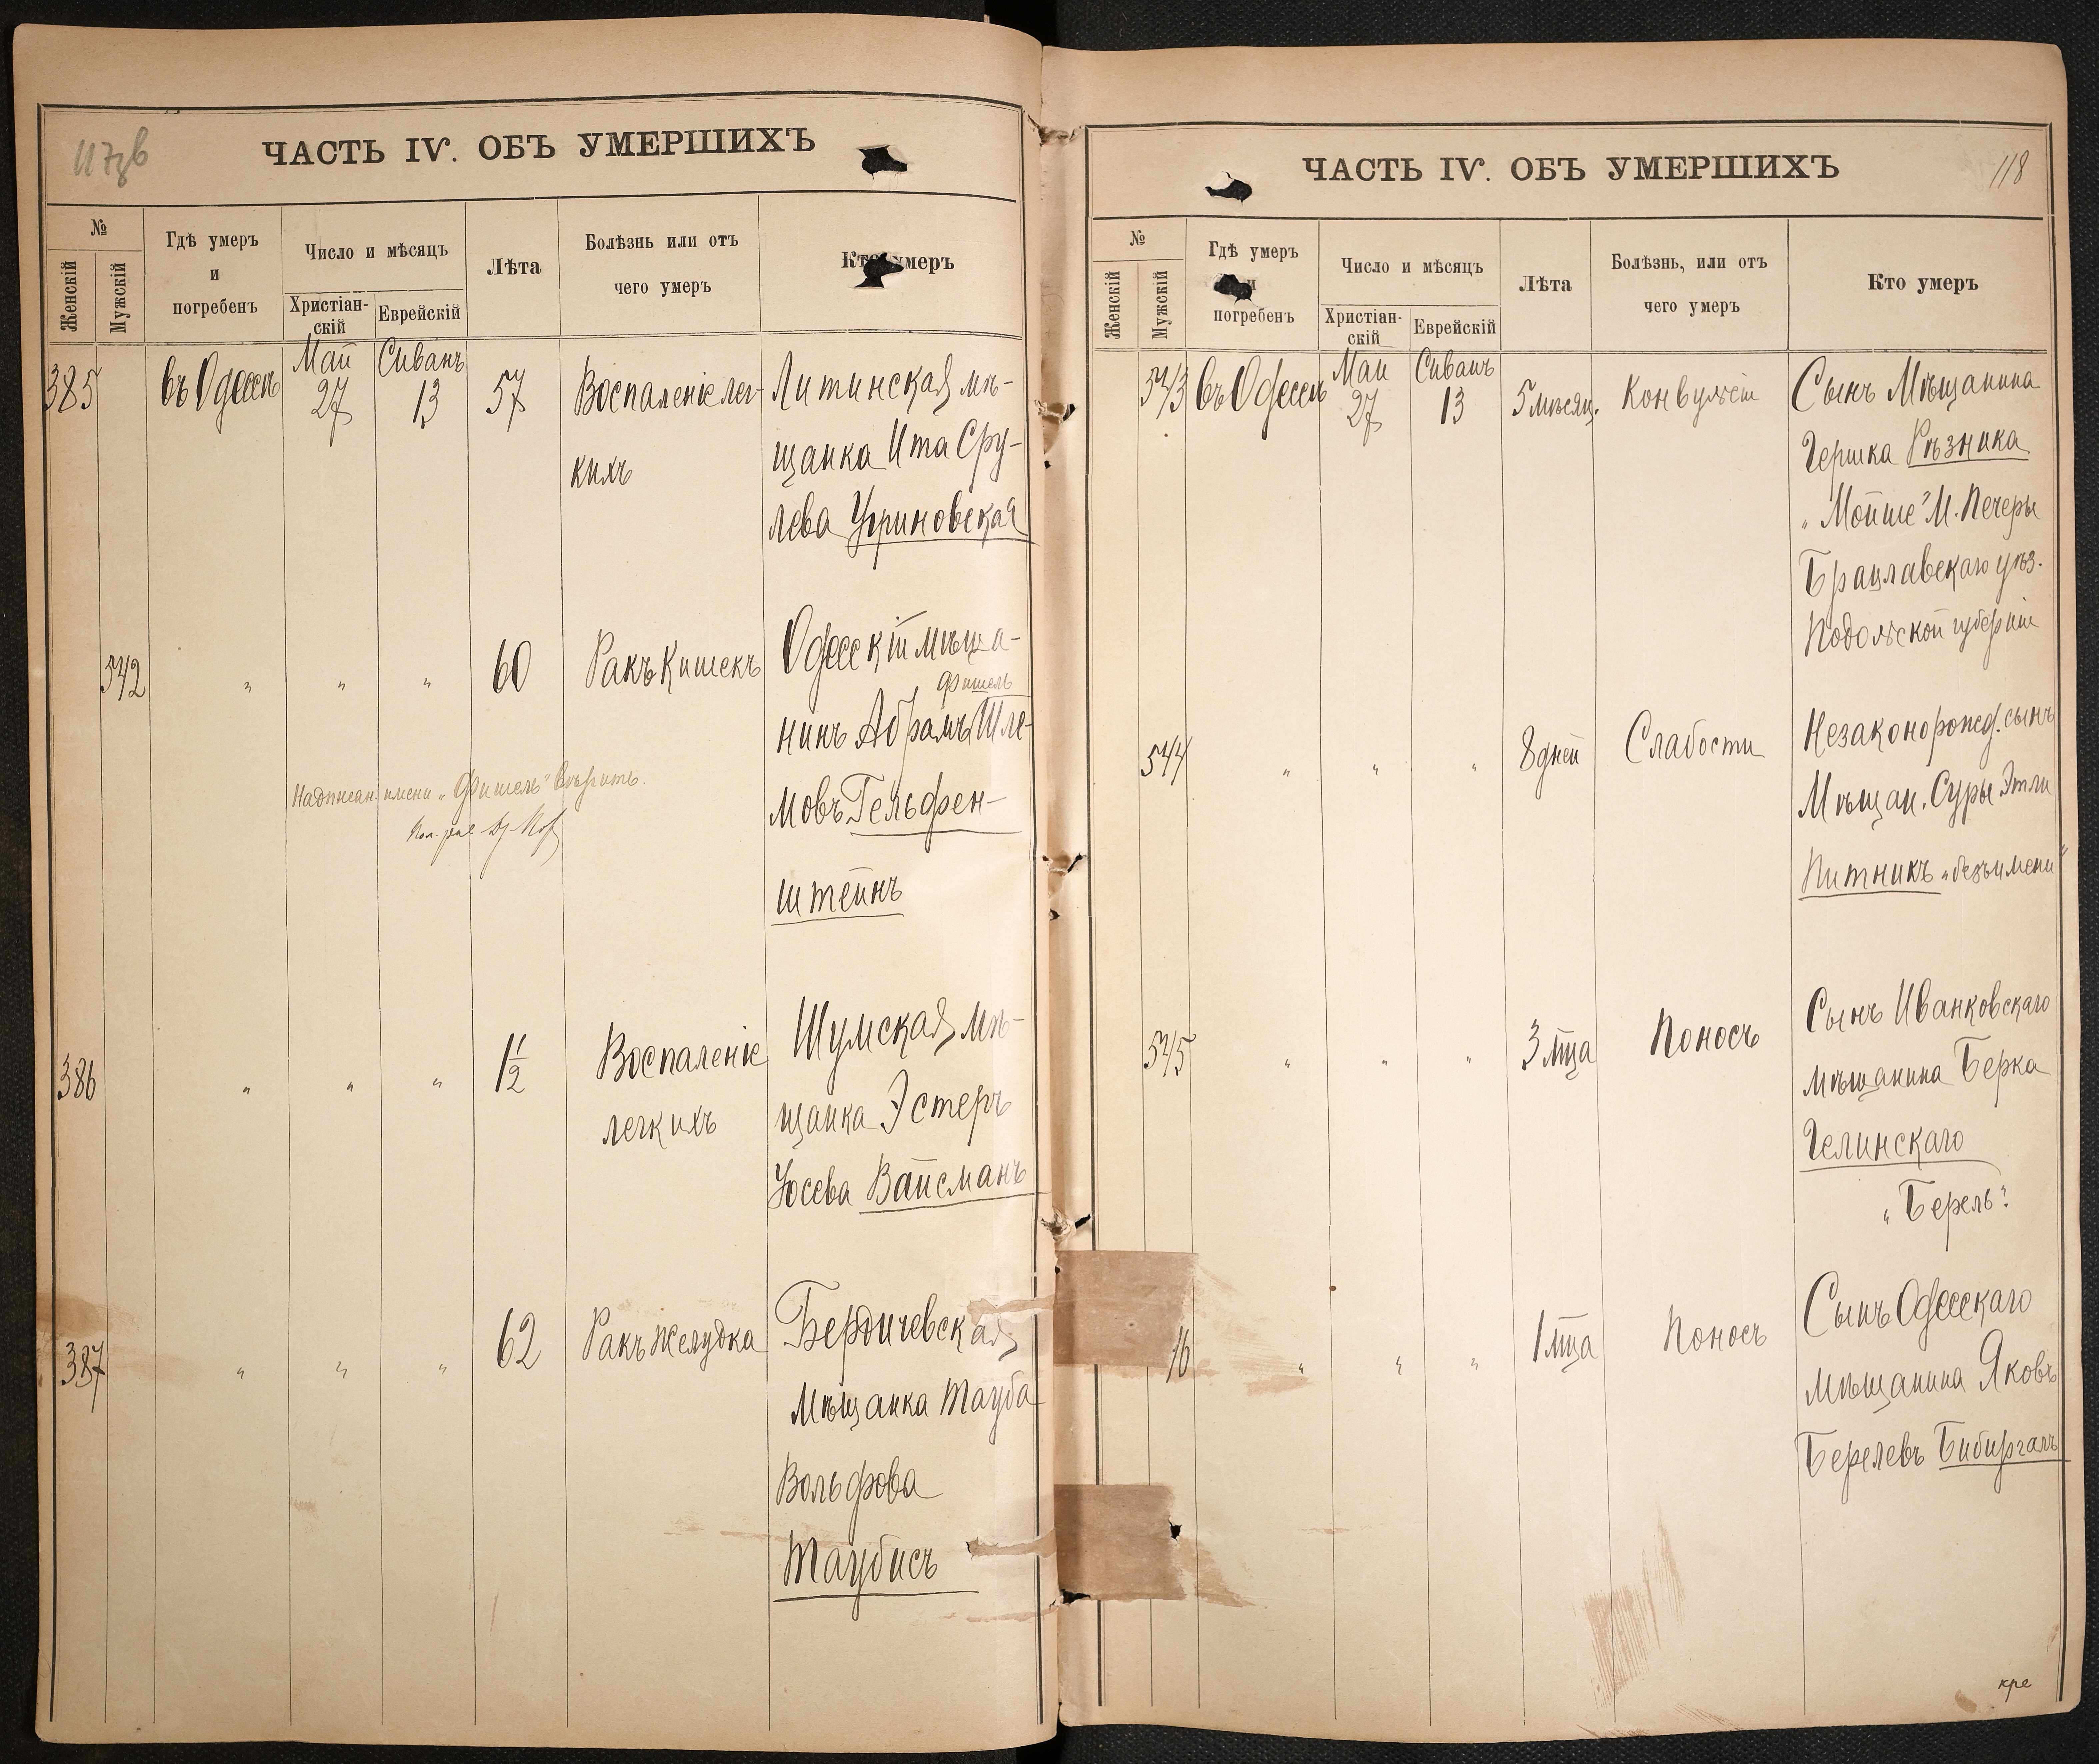 117об
ЧАСТЬ IV. ОБЪ УМЕРШИХЪ
№
Женскій
Мужскій
Гдѣ умеръ
и
погребенъ
Число и мѣсяцъ
Христіан-
скій
Еврейскій
Лѣта
Болѣзнь или отъ
чего умеръ
Кто умеръ
385 въ Одессѣ Май 27 Сиванъ 13 57 Воспаленіе лег- Литинская мѣ-
кихъ щанка Ита Сру-
лева Угриновская
542 " " " 60 Ракъ Кишекъ Одесскій мѣща-
Фишель
нинъ Абрамъ Шле-
мовъ Гельфен-
штейнъ
Надписан. имени „Фишель" вѣрить.
386 " " " 1 1/2 Воспаленіе Шумская мѣ-
легкихъ щанка Эстеръ
Іосева Вайсманъ
387 " " " 62 Ракъ Желудка Бердичевская
Мѣщанка Тауба
Вольфова
Таубисъ
118
ЧАСТЬ IV. ОБЪ УМЕРШИХЪ
№
Женскій
Мужскій
Гдѣ умеръ
и
погребенъ
Число и мѣсяцъ
Христіан-
скій
Еврейскій
Лѣта
Болѣзнь, или отъ
чего умеръ
Кто умеръ
543 въ Одессѣ Маи 27 Сиванъ 13 5 мѣсяц. Конвульсіи Сынъ Мѣщанина
Гершка Рѣзника
„Мойше" М. Печеры
Брацлавскаго уѣз.
Подольской губерніи
544 " " " 8 дней Слабости Незаконорожд. сынъ
Мѣщан. Суры Этли
Питникъ „безъимени"
545 " " " 3 мца Поносъ Сынъ Иванковскаго
мѣщанина Берка
Гелинскаго
„Берель"
46 " " " 1 мца Поносъ Сынъ Одесскаго
мѣщанина Яковъ
Берелевъ Бибиргалъ
кре